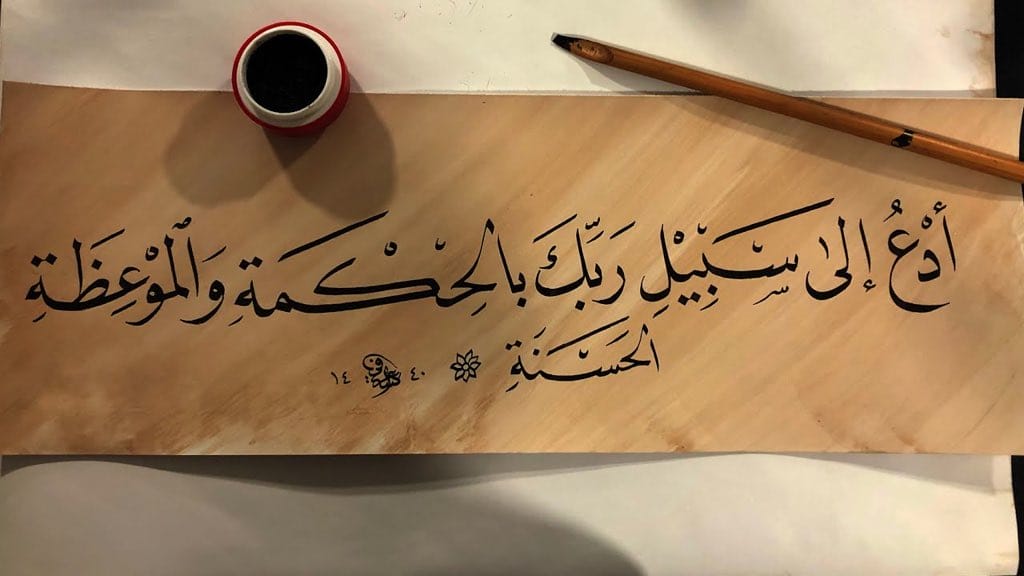 أُدْعُ إلىٰ سَبِيْلِ رَبِّكَ بالحِكْمَةِ وَالْمَوْعِظَةِ
الحَسَنَةِ ٤٠ ١٤